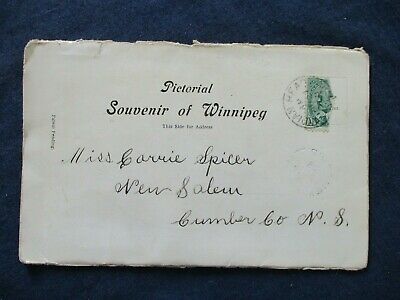 Pictorial
Souvenir of Winnipeg
This Side for Address
Miss Carrie Spicer
New Salem
Cumber Co N. S.